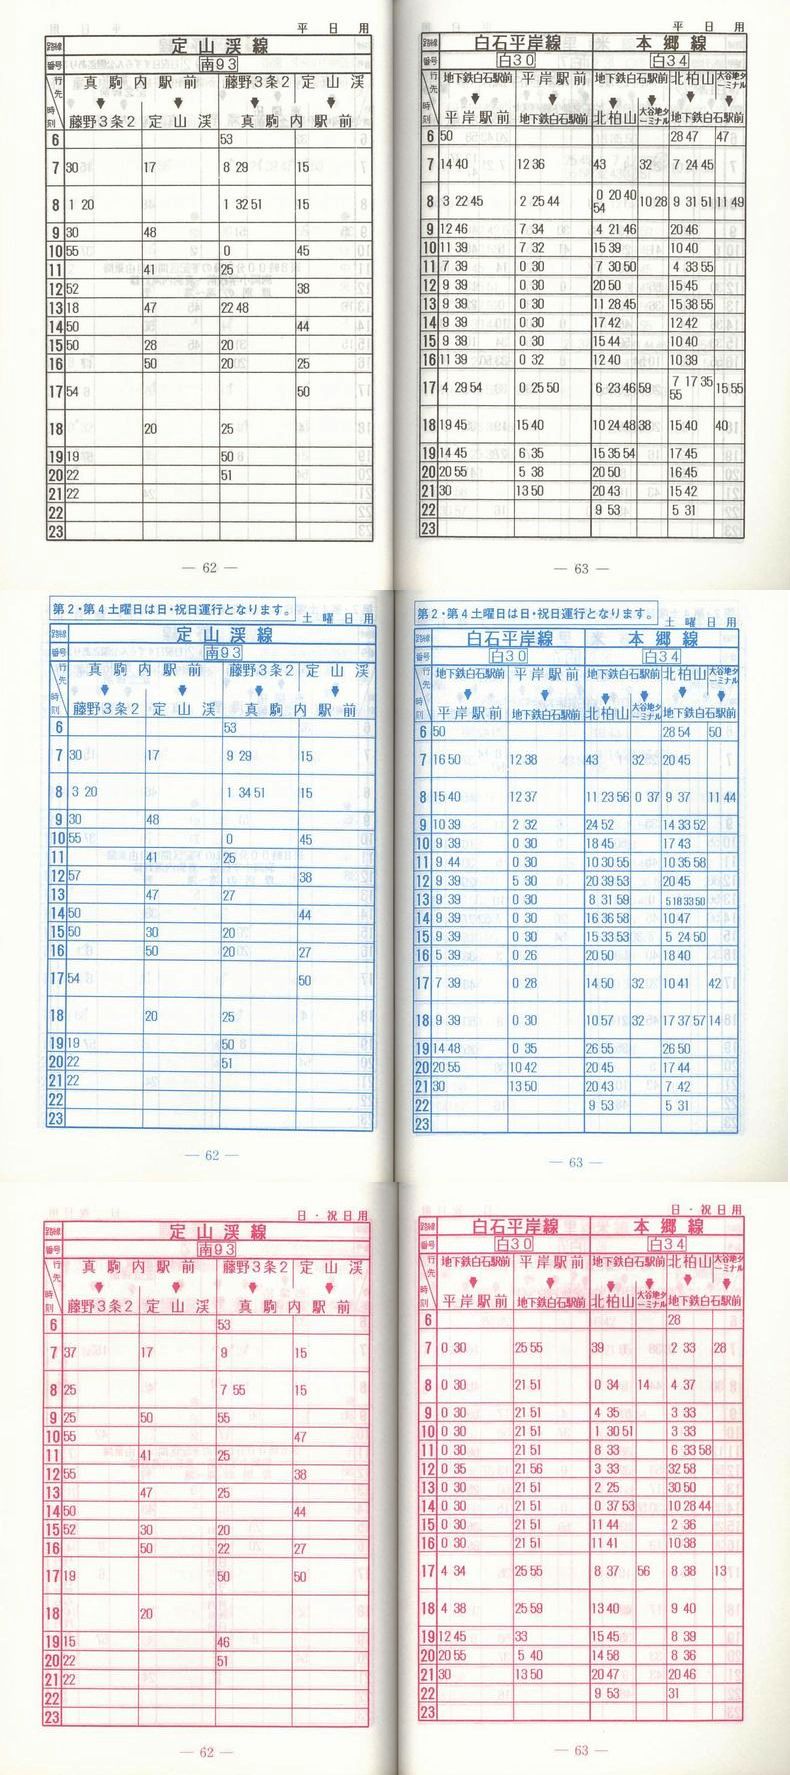 平日用
路線 定山渓線
番号 南93
行先 真駒内駅前 藤野3条2 定山渓
時刻 藤野3条2 定山渓 真駒内駅前
6 53
7 30 17 8 29 15
8 1 20 1 32 51 15
9 30 48
10 55 0 45
11 41 25
12 52 38
13 18 47 22 48
14 50 44
15 50 28 20
16 50 20 25
17 54 50
18 20 25
19 19 50
20 22 51
21 22
22
23
— 62 —
平日用
路線 白石平岸線 本郷線
番号 白30 白34
行先 地下鉄白石駅前 平岸駅前 地下鉄白石駅前 北柏山 大谷地ターミナル
時刻 平岸駅前 地下鉄白石駅前 北柏山 大谷地ターミナル 地下鉄白石駅前
6 50 28 47 47
7 14 40 12 36 43 32 7 24 45
8 3 22 45 2 25 44 0 20 40 54 10 28 9 31 51 11 49
9 12 46 7 34 4 21 46 20 46
10 11 39 7 32 15 39 10 40
11 7 39 0 30 7 30 50 4 33 55
12 9 39 0 30 20 50 15 45
13 9 39 0 30 11 28 45 15 38 55
14 9 39 0 30 17 42 12 42
15 9 39 0 30 15 44 10 40
16 11 39 0 32 12 40 10 39
17 4 29 54 0 25 50 6 23 46 59 7 17 35 55 15 55
18 19 45 15 40 10 24 48 38 15 40 40
19 14 45 6 35 15 35 54 17 45
20 20 55 5 38 20 50 16 45
21 30 13 50 20 43 15 42
22 9 53 5 31
23
— 63 —
第2・第4土曜日は日・祝日運行となります。
土曜日用
路線 定山渓線
番号 南93
行先 真駒内駅前 藤野3条2 定山渓
時刻 藤野3条2 定山渓 真駒内駅前
6 53
7 30 17 9 29 15
8 3 20 1 34 51 15
9 30 48
10 55 0 45
11 41 25
12 57 38
13 47 27
14 50 44
15 50 30 20
16 50 20 27
17 54 50
18 20 25
19 19 50
20 22 51
21 22
22
23
— 62 —
第2・第4土曜日は日・祝日運行となります。
土曜日用
路線 白石平岸線 本郷線
番号 白30 白34
行先 地下鉄白石駅前 平岸駅前 地下鉄白石駅前 北柏山 大谷地ターミナル
時刻 平岸駅前 地下鉄白石駅前 北柏山 大谷地ターミナル 地下鉄白石駅前
6 50 28 54 50
7 16 50 12 38 43 32 20 45
8 15 40 12 37 11 23 56 0 37 9 37 11 44
9 10 39 2 32 24 52 14 33 52
10 9 39 0 30 18 45 17 43
11 9 44 0 30 10 30 55 10 35 58
12 9 39 5 30 20 39 53 20 45
13 9 39 0 30 8 31 59 5 18 33 50
14 9 39 0 30 16 36 58 10 47
15 9 39 0 30 15 33 53 5 24 50
16 5 39 0 26 20 50 18 40
17 7 39 0 28 14 50 32 10 41 42
18 9 39 0 30 10 57 32 17 37 57 14
19 14 48 0 35 26 55 26 50
20 20 55 10 42 20 45 17 44
21 30 13 50 20 43 7 42
22 9 53 5 31
23
— 63 —
日・祝日用
路線 定山渓線
番号 南93
行先 真駒内駅前 藤野3条2 定山渓
時刻 藤野3条2 定山渓 真駒内駅前
6 53
7 37 17 9 15
8 25 7 55 15
9 25 50 55
10 55 47
11 41 25
12 55 38
13 47 25
14 50 44
15 52 30 20
16 50 22 27
17 19 50 50
18 20
19 15 46
20 22 51
21 22
22
23
— 62 —
日・祝日用
路線 白石平岸線 本郷線
番号 白30 白34
行先 地下鉄白石駅前 平岸駅前 地下鉄白石駅前 北柏山 大谷地ターミナル
時刻 平岸駅前 地下鉄白石駅前 北柏山 大谷地ターミナル 地下鉄白石駅前
6 28
7 0 30 25 55 39 2 33 28
8 0 30 21 51 0 34 14 4 37
9 0 30 21 51 4 35 3 33
10 0 30 21 51 1 30 51 3 33
11 0 30 21 51 8 33 6 33 58
12 0 35 21 56 3 33 32 58
13 0 30 21 51 2 25 30 50
14 0 30 21 51 0 37 53 10 28 44
15 0 30 21 51 11 44 2 36
16 0 30 21 51 11 41 10 38
17 4 34 25 55 8 37 56 8 38 13
18 4 38 25 59 13 40 9 40
19 12 45 33 15 45 8 39
20 20 55 5 40 14 58 8 36
21 30 13 50 20 47 20 46
22 9 53 31
23
— 63 —